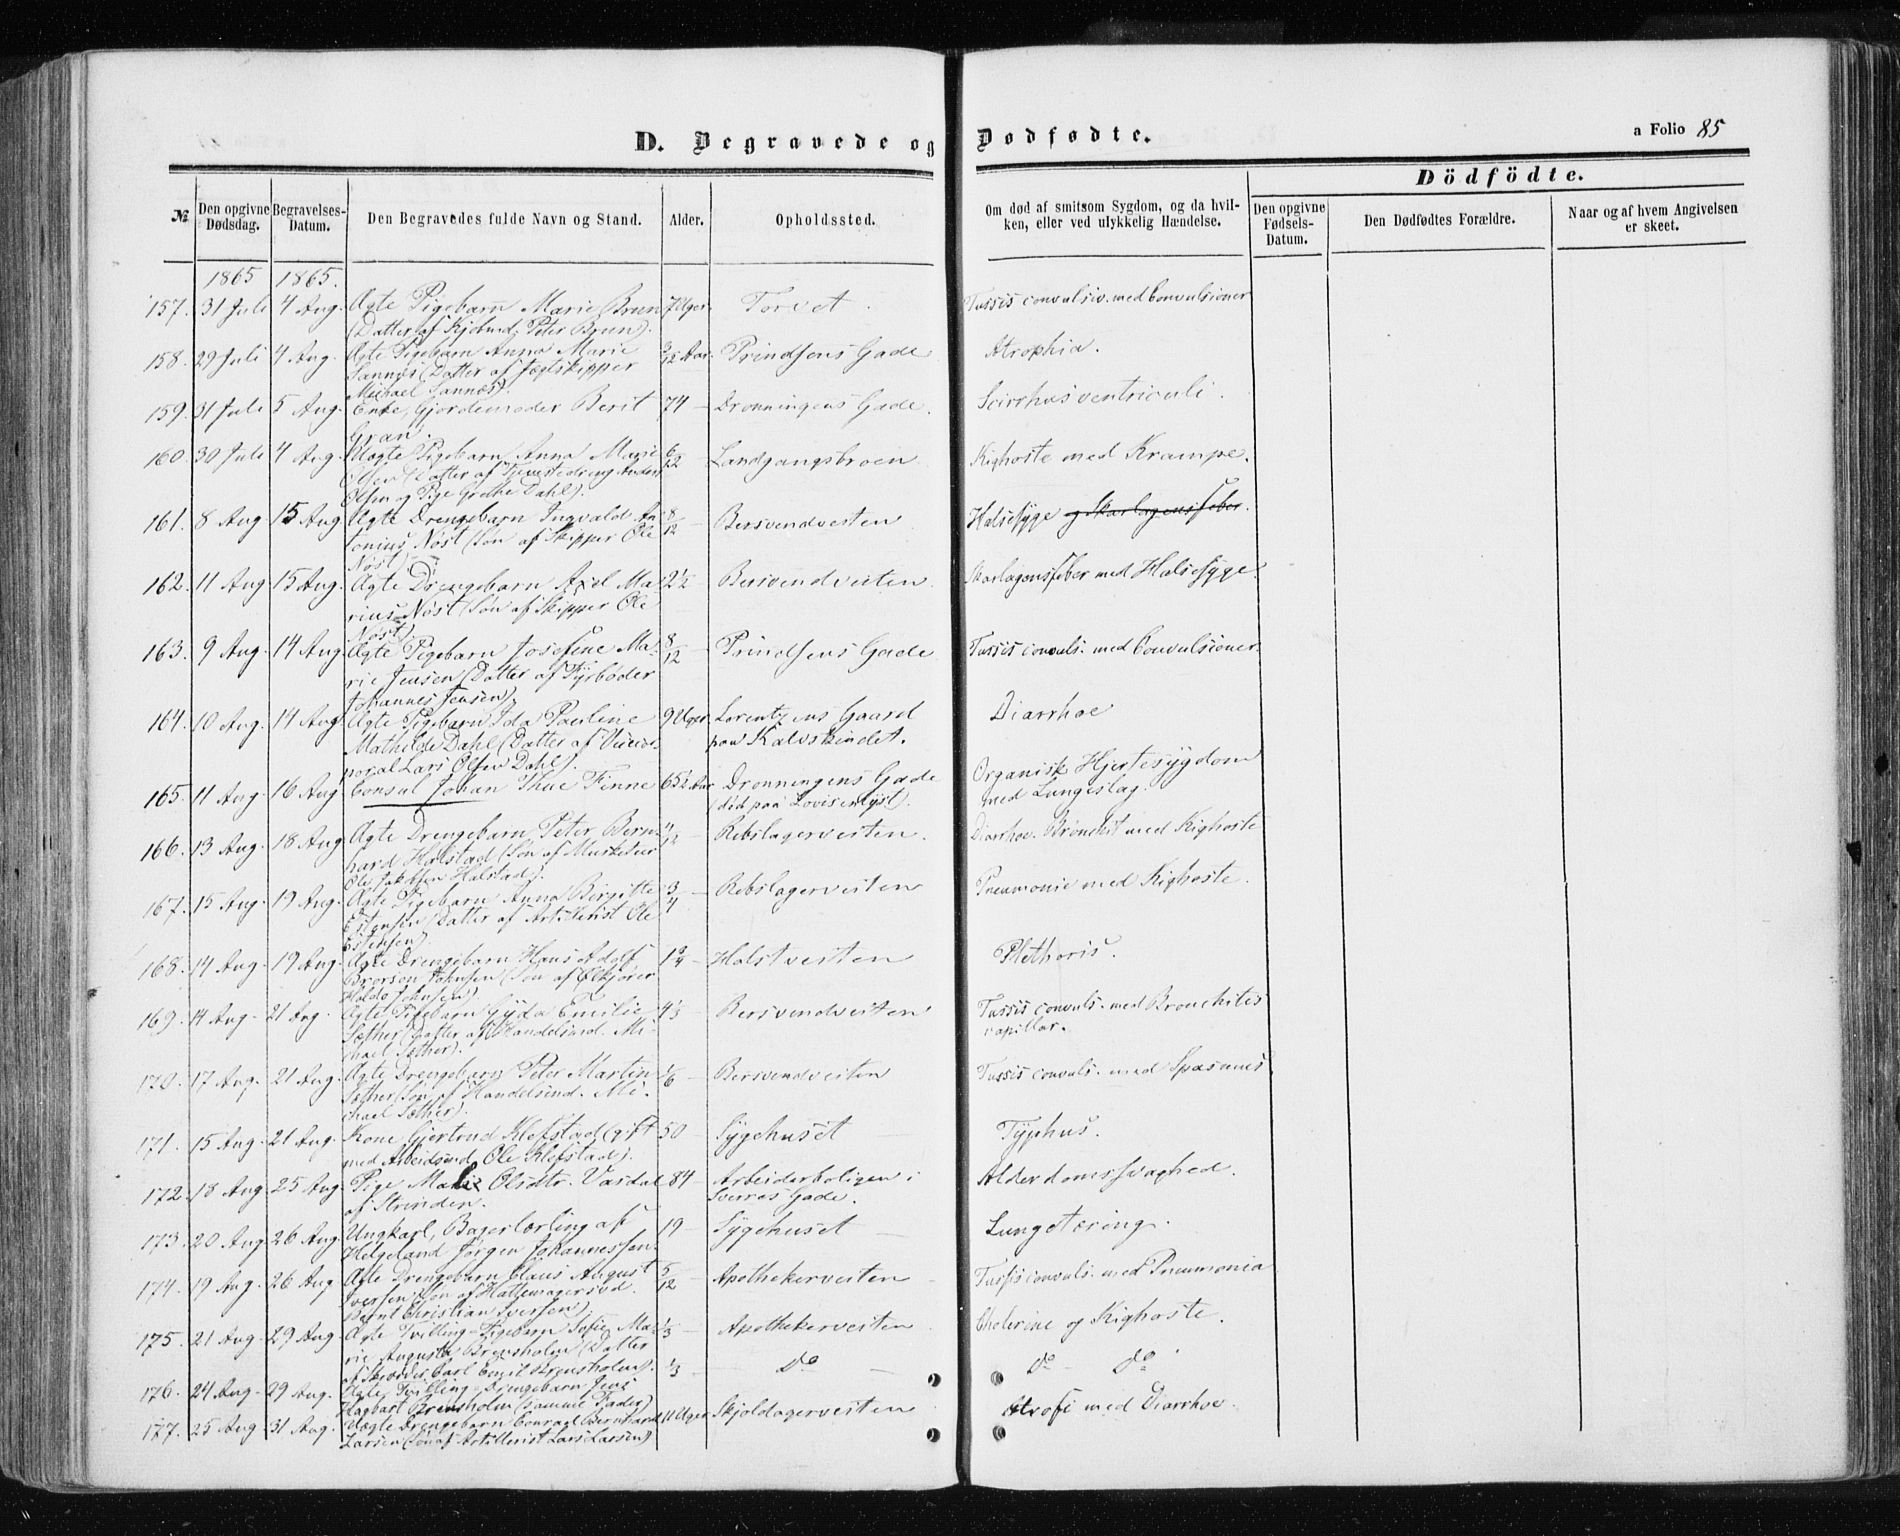 D. Begravede og Dødfødte.
a Folio 85
Dödfödte.
№
Den opgivne Dødsdag.
Begravelses-Datum.
Den Begravedes fulde Navn og Stand.
Alder.
Opholdssted.
Om død af smitsom Sygdom, og da hvilken, eller ved ulykkelig Hændelse.
Den opgivne Fødsels-Datum.
Den Dødfødtes Forældre.
Naar og af hvem Angivelsen er skeet.
1865 1865.
157. 31 Juli 4 Aug. Ægte Pigebarn Marie Brun 7 Uger Torvet. Tussis convulsiv. med Convulsioner
(Datter af Kjøbmd. Peter Brun).
158. 29 Juli 4 Aug. Ægte Pigebarn Anna Marie Aar. Prindsens Gade Atrophia.
Sannæs (Datter af Jægtskipper
Michael Sannæs).
159. 31 Juli 5 Aug. Enke, Gjordemoder Berit 74 — Dronningens Gade. Scirrhus ventriculi.
Gran.
160. 30 Juli 4 Aug. Uægte Pigebarn Anna Marie 6/12 Landgangsbroen Kighoste med Krampe.
Olsen (Datter af Tjenestedreng Anders
Olsen og Pige Grethe Dahl).
161. 8 Aug 15 Aug Ægte Drengebarn Ingvald An 8/12 — Bersvendvesten Halssyge og Skarlagensfeber.
tonius Nøst (Søn af Skipper Ole
Nøst).
162. 11 Aug 15 Aug. Ægte Drengebarn Axel Ma 2½ — Bersvendvesten. Skarlagensfeber med Halssyge.
rius Nøst (Søn af Skipper Ole
Nøst)
163. 9 Aug. 14 Aug Ægte Pigebarn Josefine Ma- 8/12 — Prindsens Gade Tussis convuls. med Convulsioner.
rie Jensen (Datter af Fyrbøder
Johannes Jensen)
164. 10 Aug. 14 Aug Ægte Pigebarn Ida Pauline 9 Uger Lorentzens Gaard Diarrhoe
Mathilde Dahl (Datter af paa Kalvskindet.
Lars Olsen Dahl).
165. 11 Aug 16 Aug Consul Johan Thue Finne 65½ Aar Dronningens Gade Organisk Hjertesygdom
(død paa Lovisenlyst). med Lungeslag.
166. 13 Aug. 18 Aug Ægte Drengebarn Peter Bern- 11/12 — Rebslagervesten. Diarrhoe. Bronchit med Kighoste
hard Halstad (Søn af Musketer
Ole Jakobsen Halstad).
167. 15 Aug. 19 Aug. Ægte Pigebarn Anna Birgitte 3/4 — Rebslagervesten Pneumonie med Kighoste.
Estensen (Datter af Artillerist Ole
Estensen)
168. 14 Aug. 19 Aug. Ægte Drengebarn Hans Adolf 1¾ — Holstvesten Plethoris.
Brorson Johnsen (Søn af Ølkjører
Johnsen)
169. 14 Aug. 21 Aug. Ægte Pigebarn Gyda Emilie 4⅓ — Bersvendvesten Tussis convuls. med Bronchites
Sæther (Datter af Handelsmd. Mi- capillar.
chael Sæther).
170. 17 Aug. 21 Aug. Ægte Drengebarn Peter Martin 1/6 — Bersvendvesten Tussis convuls. med Spasmus
Sæther (Søn af Handelsmd. Mi-
chael Sæther).
171. 15 Aug. 21 Aug. Kone Gjertrud Klefstad (gift 50 — Sygehuset — Typhus.
med Arbeidsmd. Ole Klefstad).
172. 18 Aug 25 Aug. Pige Olsdtr. Vasdal 84 — Arbeiderboligen i Alderdomssvaghed.
af Strinden. Sverres Gade.
173. 20 Aug 26 Aug. Ungkarl, Bagerlærling af 19 — Sygehuset — Lungetæring.
Helgeland Jørgen Johannessen.
174. 19 Aug. 26 Aug Ægte Drengebarn Claus August 5/12 — Apothekervesten — Tussis convuls. med Pneumonia
Iversen (Søn af Hattemagersvd.
Bernt Christian Iversen)
175. 21 Aug 29 Aug Ægte Tvilling-Pigebarn Sofie Ma- 1/3 — Apothekervesten Cholerine og Kighoste.
rie Augusta Brensholm (Datter
af Skrædder Carl Emil Brensholm).
176. 24 Aug. 29 Aug. Ægte Tvilling-Drengebarn Jens 1/3 — do — do — do
Hagbart Brensholm (samme Fader)
177. 25 Aug. 31 Aug. Uægte Drengebarn Conrad Bernhard 11 Uger Skjoldagervesten Atrofi med Diarrhoe.
Larsen (Søn af Artillerist Lars Larsen)